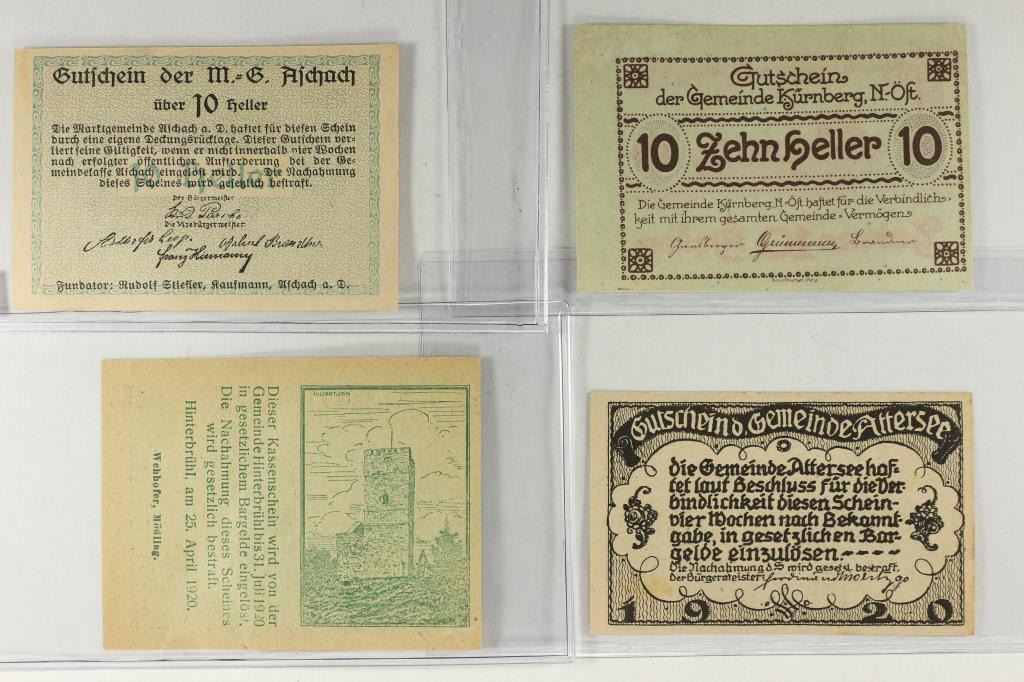 Gutschein der M.-G. Aschach
über 10 Heller
Die Marktgemeinde Aschach a. D. haftet für diesen Schein
durch eine eigene Deckungsrücklage. Dieser Gutschein ver-
liert seine Giltigkeit, wenn er nicht innerhalb vier Wochen
nach erfolgter öffentlicher Aufforderung bei der Ge-
meindekasse Aschach eingelöst wird. — Die Nachahmung
dieses Scheines wird gesetzlich bestraft.
10 Heller
Der Bürgermeister
Die Vizebürgermeister
Fundator: Rudolf Stiefler, Kaufmann, Aschach a. D.
Gutschein
der Gemeinde Kürnberg, N.-Öst.
10 Zehn Heller 10
Die Gemeinde Kürnberg, N.-Öst. haftet für die Verbindlich-
keit mit ihrem gesamten Gemeinde-Vermögen
JULIENTURM
Dieser Kassenschein wird von der
Gemeinde Hinterbrühl bis 31. Juli 1920
in gesetzlichem Bargelde eingelöst.
Die Nachahmung dieses Scheines
wird gesetzlich bestraft.
Hinterbrühl, am 25. April 1920.
Wehhofer, Mödling.
Gutschein d. Gemeinde Attersee
die Gemeinde Attersee haf-
tet laut Beschluss für die Ver-
bindlichkeit diesen Schein-
vier Wochen nach Bekannt-
gabe, in gesetzlichen Bar-
gelde einzulösen.----
Die Nachahmung d. S wird gesetzl. bestraft.
der Bürgermeister:
1 9 2 0